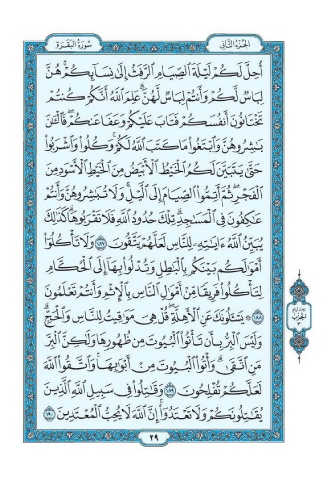 الجزء الثاني
سورة البقرة
أُحِلَّ لَكُمْ لَيْلَةَ ٱلصِّيَامِ ٱلرَّفَثُ إِلَىٰ نِسَآئِكُمْۚ هُنَّ
لِبَاسٌ لَّكُمْ وَأَنتُمْ لِبَاسٌ لَّهُنَّۗ عَلِمَ ٱللَّهُ أَنَّكُمْ كُنتُمْ
تَخْتَانُونَ أَنفُسَكُمْ فَتَابَ عَلَيْكُمْ وَعَفَا عَنكُمْۖ فَٱلْـَٰٔنَ
بَـٰشِرُوهُنَّ وَٱبْتَغُوا۟ مَا كَتَبَ ٱللَّهُ لَكُمْۚ وَكُلُوا۟ وَٱشْرَبُوا۟
حَتَّىٰ يَتَبَيَّنَ لَكُمُ ٱلْخَيْطُ ٱلْأَبْيَضُ مِنَ ٱلْخَيْطِ ٱلْأَسْوَدِ مِنَ
ٱلْفَجْرِۖ ثُمَّ أَتِمُّوا۟ ٱلصِّيَامَ إِلَى ٱلَّيْلِۚ وَلَا تُبَـٰشِرُوهُنَّ وَأَنتُمْ
عَـٰكِفُونَ فِى ٱلْمَسَـٰجِدِۗ تِلْكَ حُدُودُ ٱللَّهِ فَلَا تَقْرَبُوهَاۗ كَذَٰلِكَ
يُبَيِّنُ ٱللَّهُ ءَايَـٰتِهِۦ لِلنَّاسِ لَعَلَّهُمْ يَتَّقُونَ ١٨٧ وَلَا تَأْكُلُوٓا۟
أَمْوَٰلَكُم بَيْنَكُم بِٱلْبَـٰطِلِ وَتُدْلُوا۟ بِهَآ إِلَى ٱلْحُكَّامِ
لِتَأْكُلُوا۟ فَرِيقًا مِّنْ أَمْوَٰلِ ٱلنَّاسِ بِٱلْإِثْمِ وَأَنتُمْ تَعْلَمُونَ
١٨٨ ۞ يَسْـَٔلُونَكَ عَنِ ٱلْأَهِلَّةِۖ قُلْ هِىَ مَوَٰقِيتُ لِلنَّاسِ وَٱلْحَجِّۗ
وَلَيْسَ ٱلْبِرُّ بِأَن تَأْتُوا۟ ٱلْبُيُوتَ مِن ظُهُورِهَا وَلَـٰكِنَّ ٱلْبِرَّ
مَنِ ٱتَّقَىٰۗ وَأْتُوا۟ ٱلْبُيُوتَ مِنْ أَبْوَٰبِهَاۚ وَٱتَّقُوا۟ ٱللَّهَ
لَعَلَّكُمْ تُفْلِحُونَ ١٨٩ وَقَـٰتِلُوا۟ فِى سَبِيلِ ٱللَّهِ ٱلَّذِينَ
يُقَـٰتِلُونَكُمْ وَلَا تَعْتَدُوٓا۟ۚ إِنَّ ٱللَّهَ لَا يُحِبُّ ٱلْمُعْتَدِينَ ١٩٠
٢٩